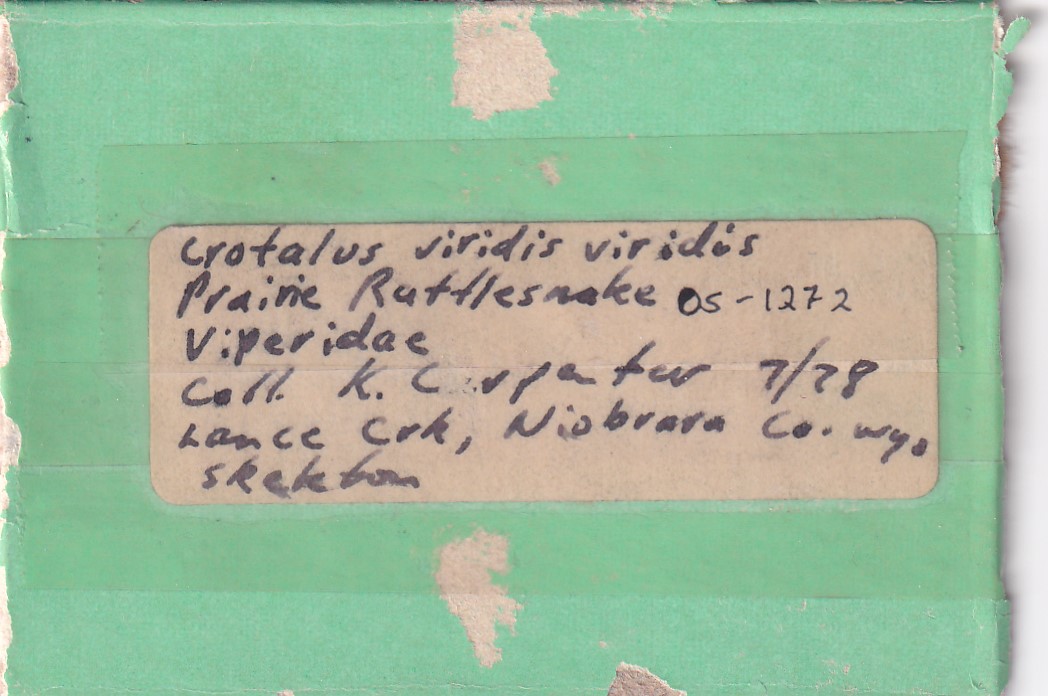 Crotalus viridis viridis
Prairie Rattlesnake OS-1272
Viperidae
Coll. K. Carpenter 7/78
Lance Crk, Niobrara Co. Wyo
skeleton